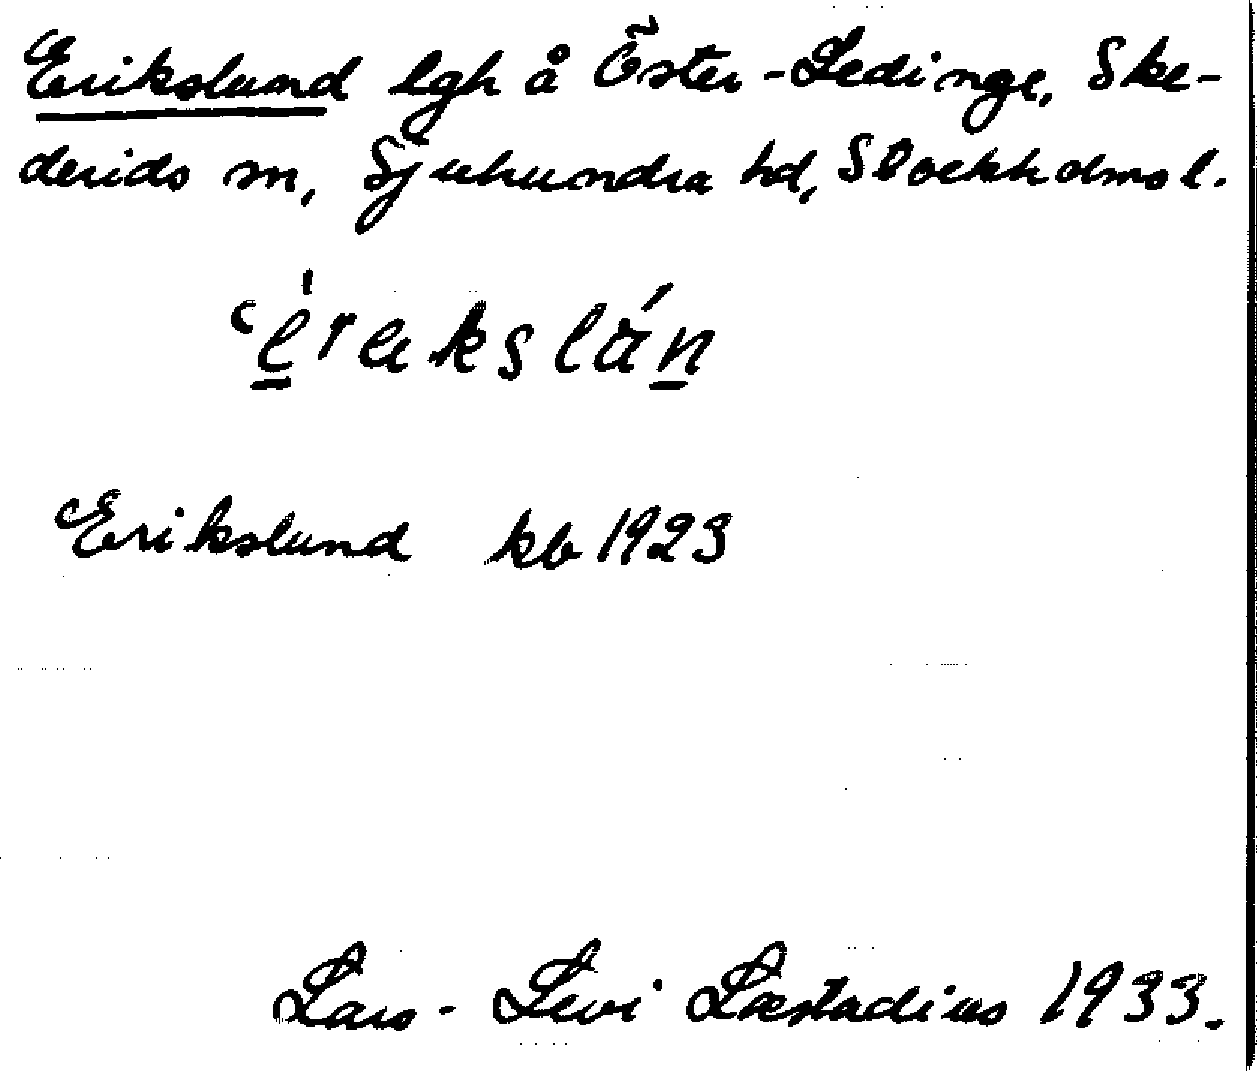 Erikslund lgh å Öster-Ledinge, Ske-
derids sn, Sjuhundra hd, Stockholms l.
Erikslund kb 1923
Lars-Levi Læstadius 1933.